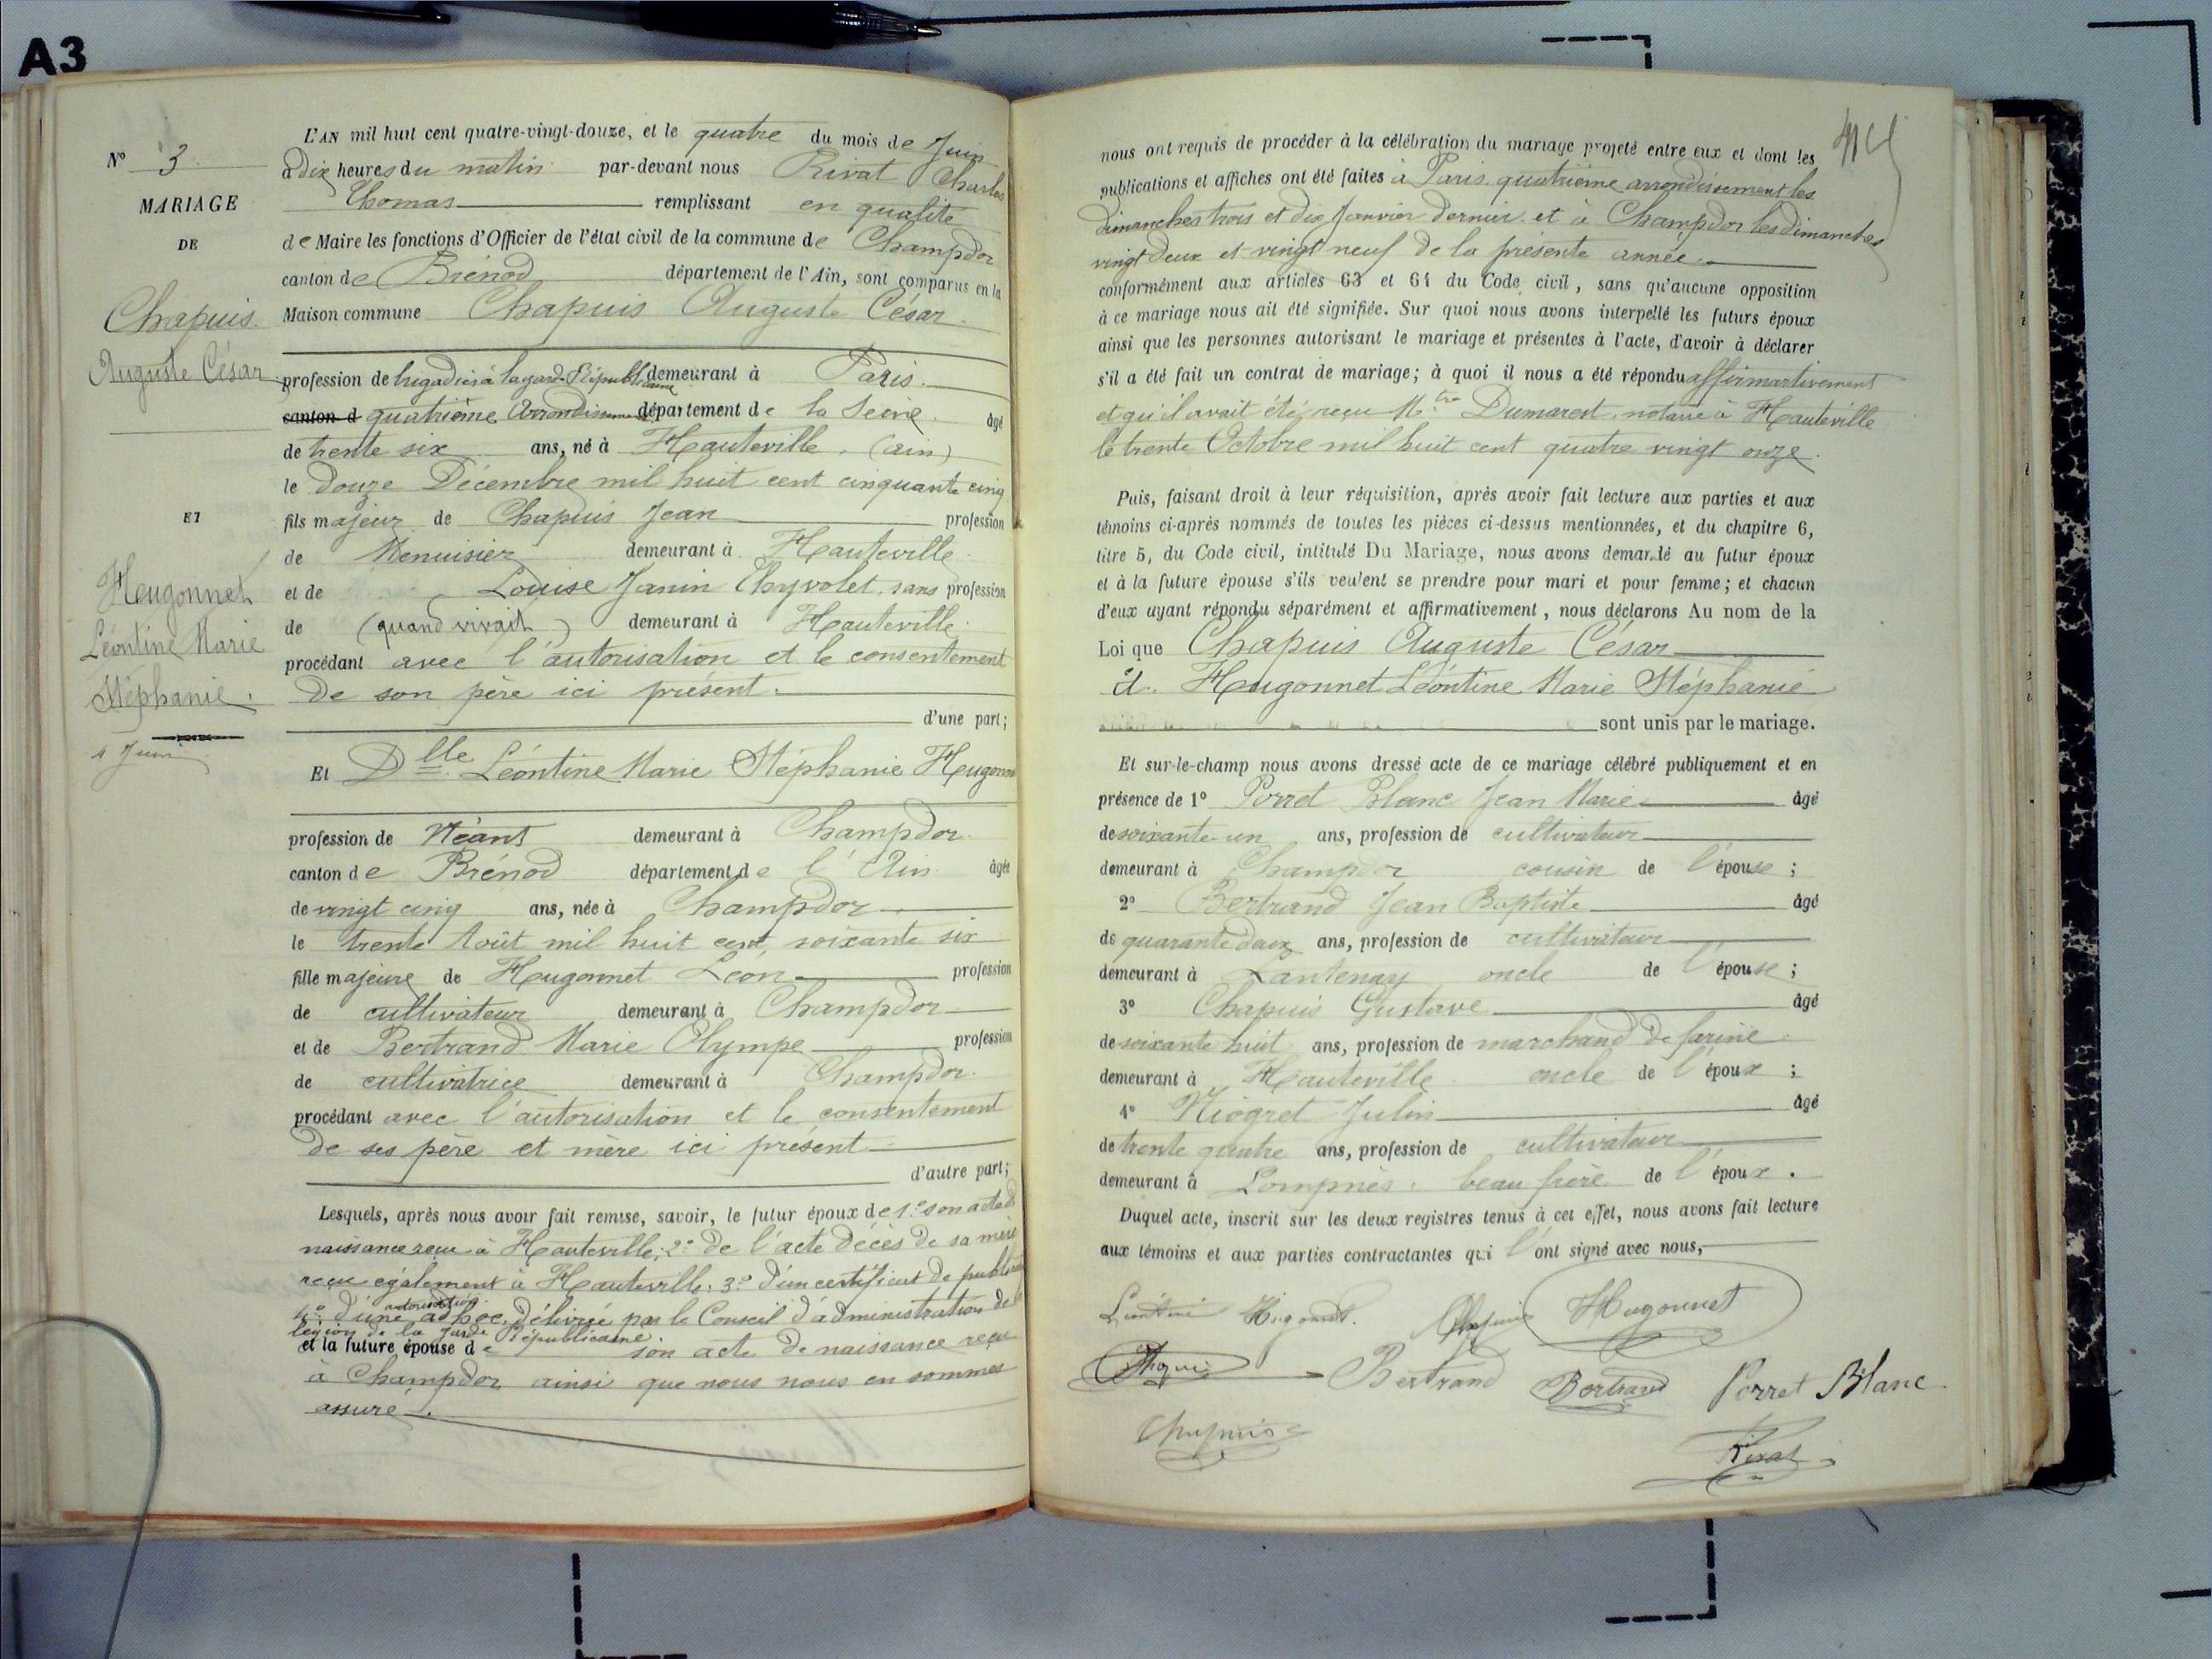 A3
N° 3
MARIAGE
DE
Chapuis
Auguste César
ET
Hougonnet
Léontine Marie
Stéphanie.
4 Juin
L'AN mil huit cent quatre-vingt-douze, et le quatre du mois de Juin
à dix heures du matin par-devant nous Rivat Charles
Thomas remplissant en qualité
de Maire les fonctions d'Officier de l'état civil de la commune de Champdor
canton de Brénod département de l'Ain, sont comparus en la
Maison commune Chapuis Auguste César
profession de brigadier à la garde Républicaine demeurant à Paris.
canton d quatrième Arrondissement département de la Seine. âgé
de trente six ans, né à Hauteville. (ain)
le douze Décembre mil huit cent cinquante cinq
fils majeur de Chapuis Jean profession
de Menuisier demeurant à Hauteville.
et de Louise Janin Thyvolet, sans profession
de (quand vivait) demeurant à Hauteville.
procédant avec l'autorisation et le consentement
de son père ici présent.
d'une part;
Et Dlle Léontine Marie Stéphanie Hougonnet
profession de Néant demeurant à Champdor.
canton de Brénod département de l'Ain. âgée
de vingt cinq ans, née à Champdor
le trente Août mil huit cent soixante six
fille majeure de Hougonnet Léon profession
de cultivateur demeurant à Champdor
et de Bertrand Marie Olympe profession
de cultivatrice demeurant à Champdor.
procédant avec l'autorisation et le consentement
de ses père et mère ici présent
d'autre part;
Lesquels, après nous avoir fait remise, savoir, le futur époux de 1° son acte de
naissance reçu à Hauteville; 2° de l'acte décès de sa mère
reçu également à Hauteville; 3° d'un certificat de publication
4° d'une autorisation ad hoc, délivrée par le Conseil d'administration de la
légion de la Garde Républicaine.
et la future épouse de son acte de naissance reçu
à Champdor ainsi que nous nous en sommes
assuré.
nous ont requis de procéder à la célébration du mariage projeté entre eux et dont les
publications et affiches ont été faites à Paris quatrième arrondissement les
dimanches trois et dix Janvier dernier et à Champdor les dimanches
vingt deux et vingt neuf de la présente année.
conformément aux articles 63 et 64 du Code civil, sans qu'aucune opposition
à ce mariage nous ait été signifiée. Sur quoi nous avons interpellé les futurs époux
ainsi que les personnes autorisant le mariage et présentes à l'acte, d'avoir à déclarer
s'il a été fait un contrat de mariage; à quoi il nous a été répondu affirmartivement
et qu'il avait été reçu Mtre Dumarest, notaire à Hauteville
le trente Octobre mil huit cent quatre vingt onze.
Puis, faisant droit à leur réquisition, après avoir fait lecture aux parties et aux
témoins ci-après nommés de toutes les pièces ci-dessus mentionnées, et du chapitre 6,
titre 5, du Code civil, intitulé Du Mariage, nous avons demandé au futur époux
et à la future épouse s'ils veulent se prendre pour mari et pour femme; et chacun
d'eux ayant répondu séparément et affirmativement, nous déclarons Au nom de la
Loi que Chapuis Auguste César
et Hougonnet Léontine Marie Stéphanie
sont unis par le mariage.
Et sur-le-champ nous avons dressé acte de ce mariage célébré publiquement et en
présence de 1° Porret Blanc Jean Marie âgé
de soixante un ans, profession de cultivateur
demeurant à Champdor cousin de l'épouse;
2° Bertrand Jean Baptiste âgé
de quarante deux ans, profession de cultivateur
demeurant à Lantenay oncle de l'épouse;
3° Chapuis Gustave âgé
de soixante huit ans, profession de marchand de farine.
demeurant à Hauteville oncle de l'époux;
4° Niogret Julien âgé
de trente quatre ans, profession de cultivateur
demeurant à Lompnès. beau frère de l'époux.
Duquel acte, inscrit sur les deux registres tenus à cet effet, nous avons fait lecture
aux témoins et aux parties contractantes qui l'ont signé avec nous,
Chapuis Hugonnet
Bertrand Bertrand Porret Blanc
Chapuis
Rivat